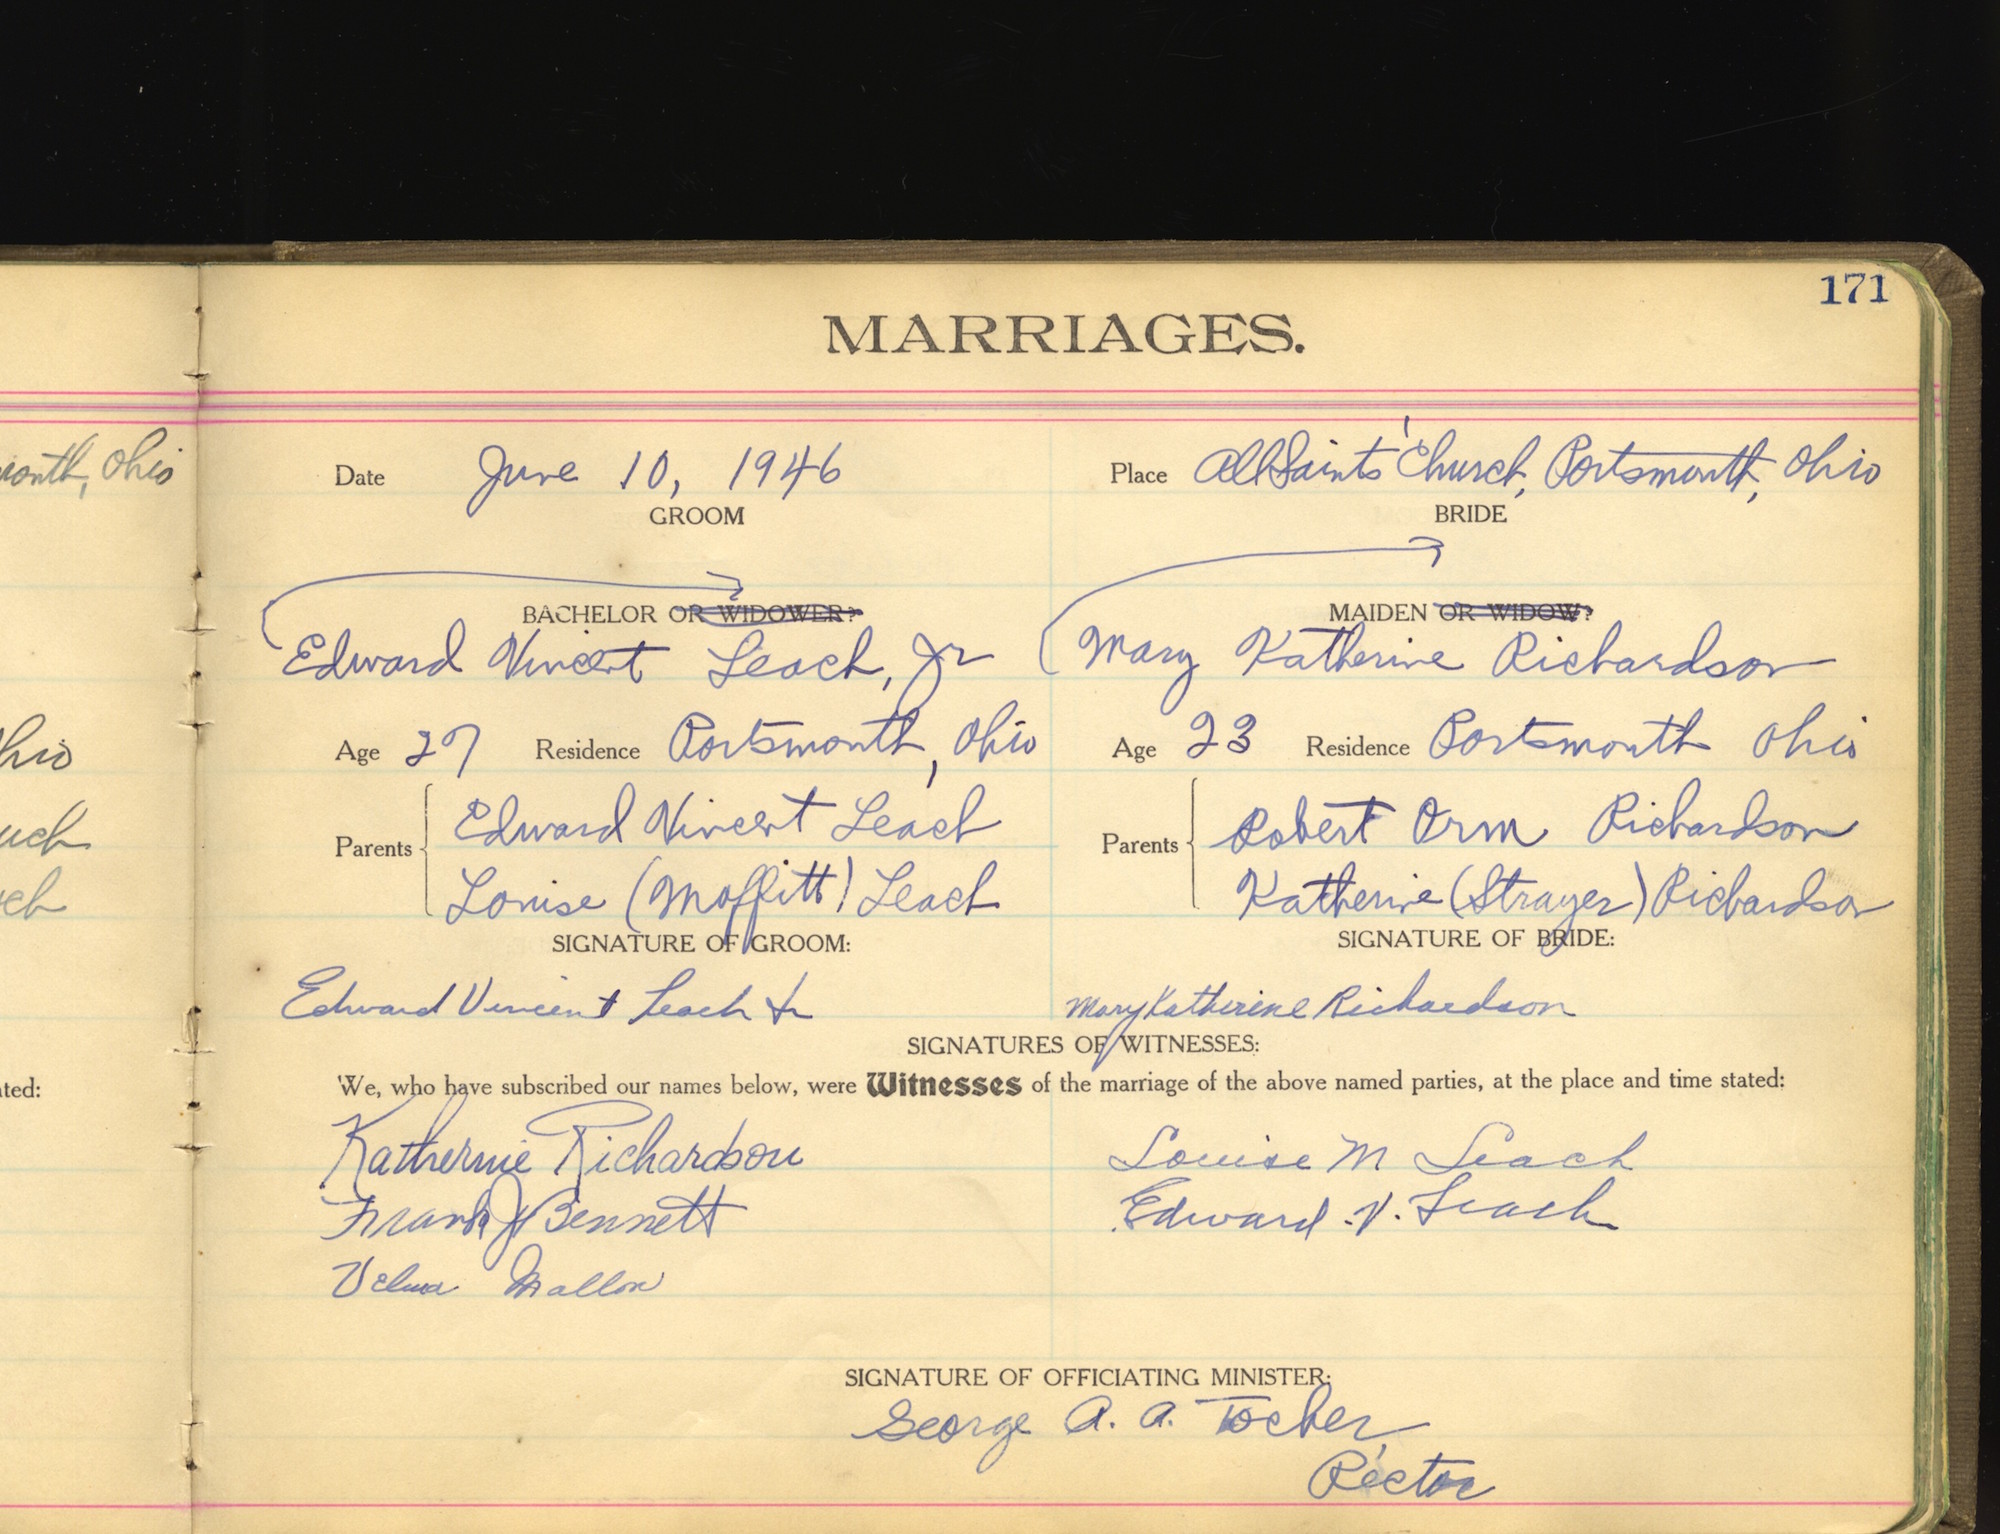 171
MARRIAGES.
onth, Ohio
Date June 10, 1946 Place All Saints' Church, Portsmouth, Ohio
GROOM BRIDE
BACHELOR OR WIDOWER? MAIDEN OR WIDOW?
Edward Vincent Leach, Jr Mary Katherine Richardson
hio
Age 27 Residence Portsmouth, Ohio Age 23 Residence Portsmouth Ohio
Parents Edward Vincent Leach Parents Robert Orm Richardson
Louise (Moffitt) Leach Katherine (Strayer) Richardson
SIGNATURE OF GROOM: SIGNATURE OF BRIDE:
Edward Vincent Leach Jr Mary Katherine Richardson
SIGNATURES OF WITNESSES:
ted: We, who have subscribed our names below, were Witnesses of the marriage of the above named parties, at the place and time stated:
Katherine Richardson Louise M Leach
Frank J Bennett Edward V. Leach
Velma Mallon
SIGNATURE OF OFFICIATING MINISTER:
George A. A. Tocher,
Rector